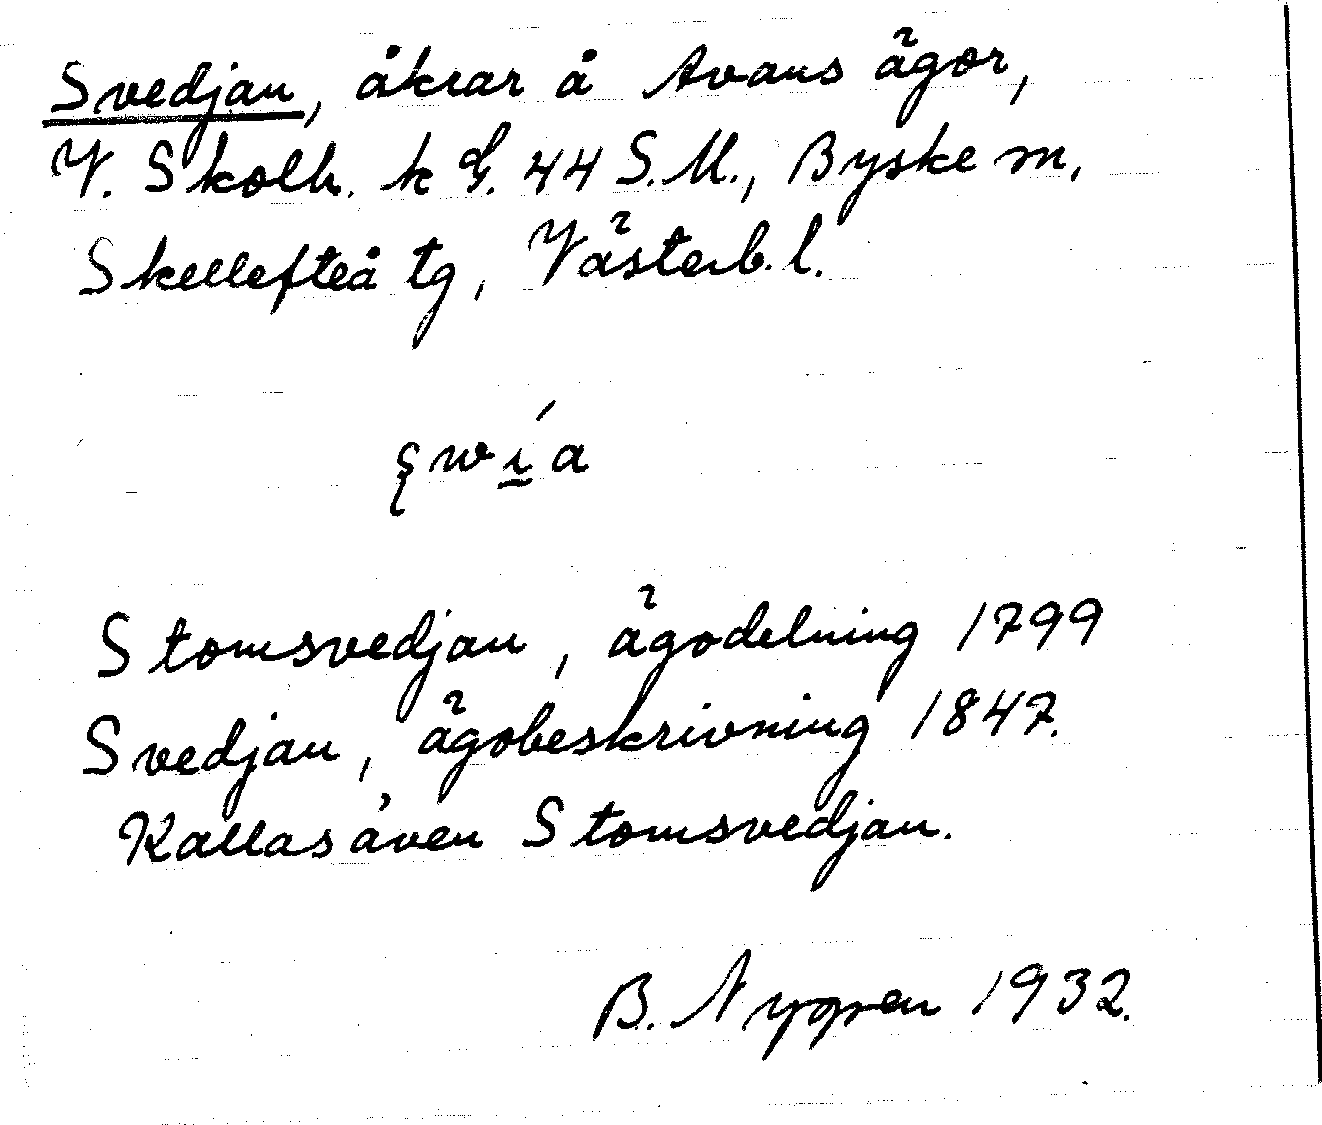 Svedjan, åkrar å Avans ägor,
V. Skolh. k G. 44 S.M., Byske sn,
Skellefteå tg, Västerb. l.
Stomsvedjan, ägodelning 1799
Svedjan, ägobeskrivning 1847.
Kallas även Stomsvedjan.
B. Nygren 1932.